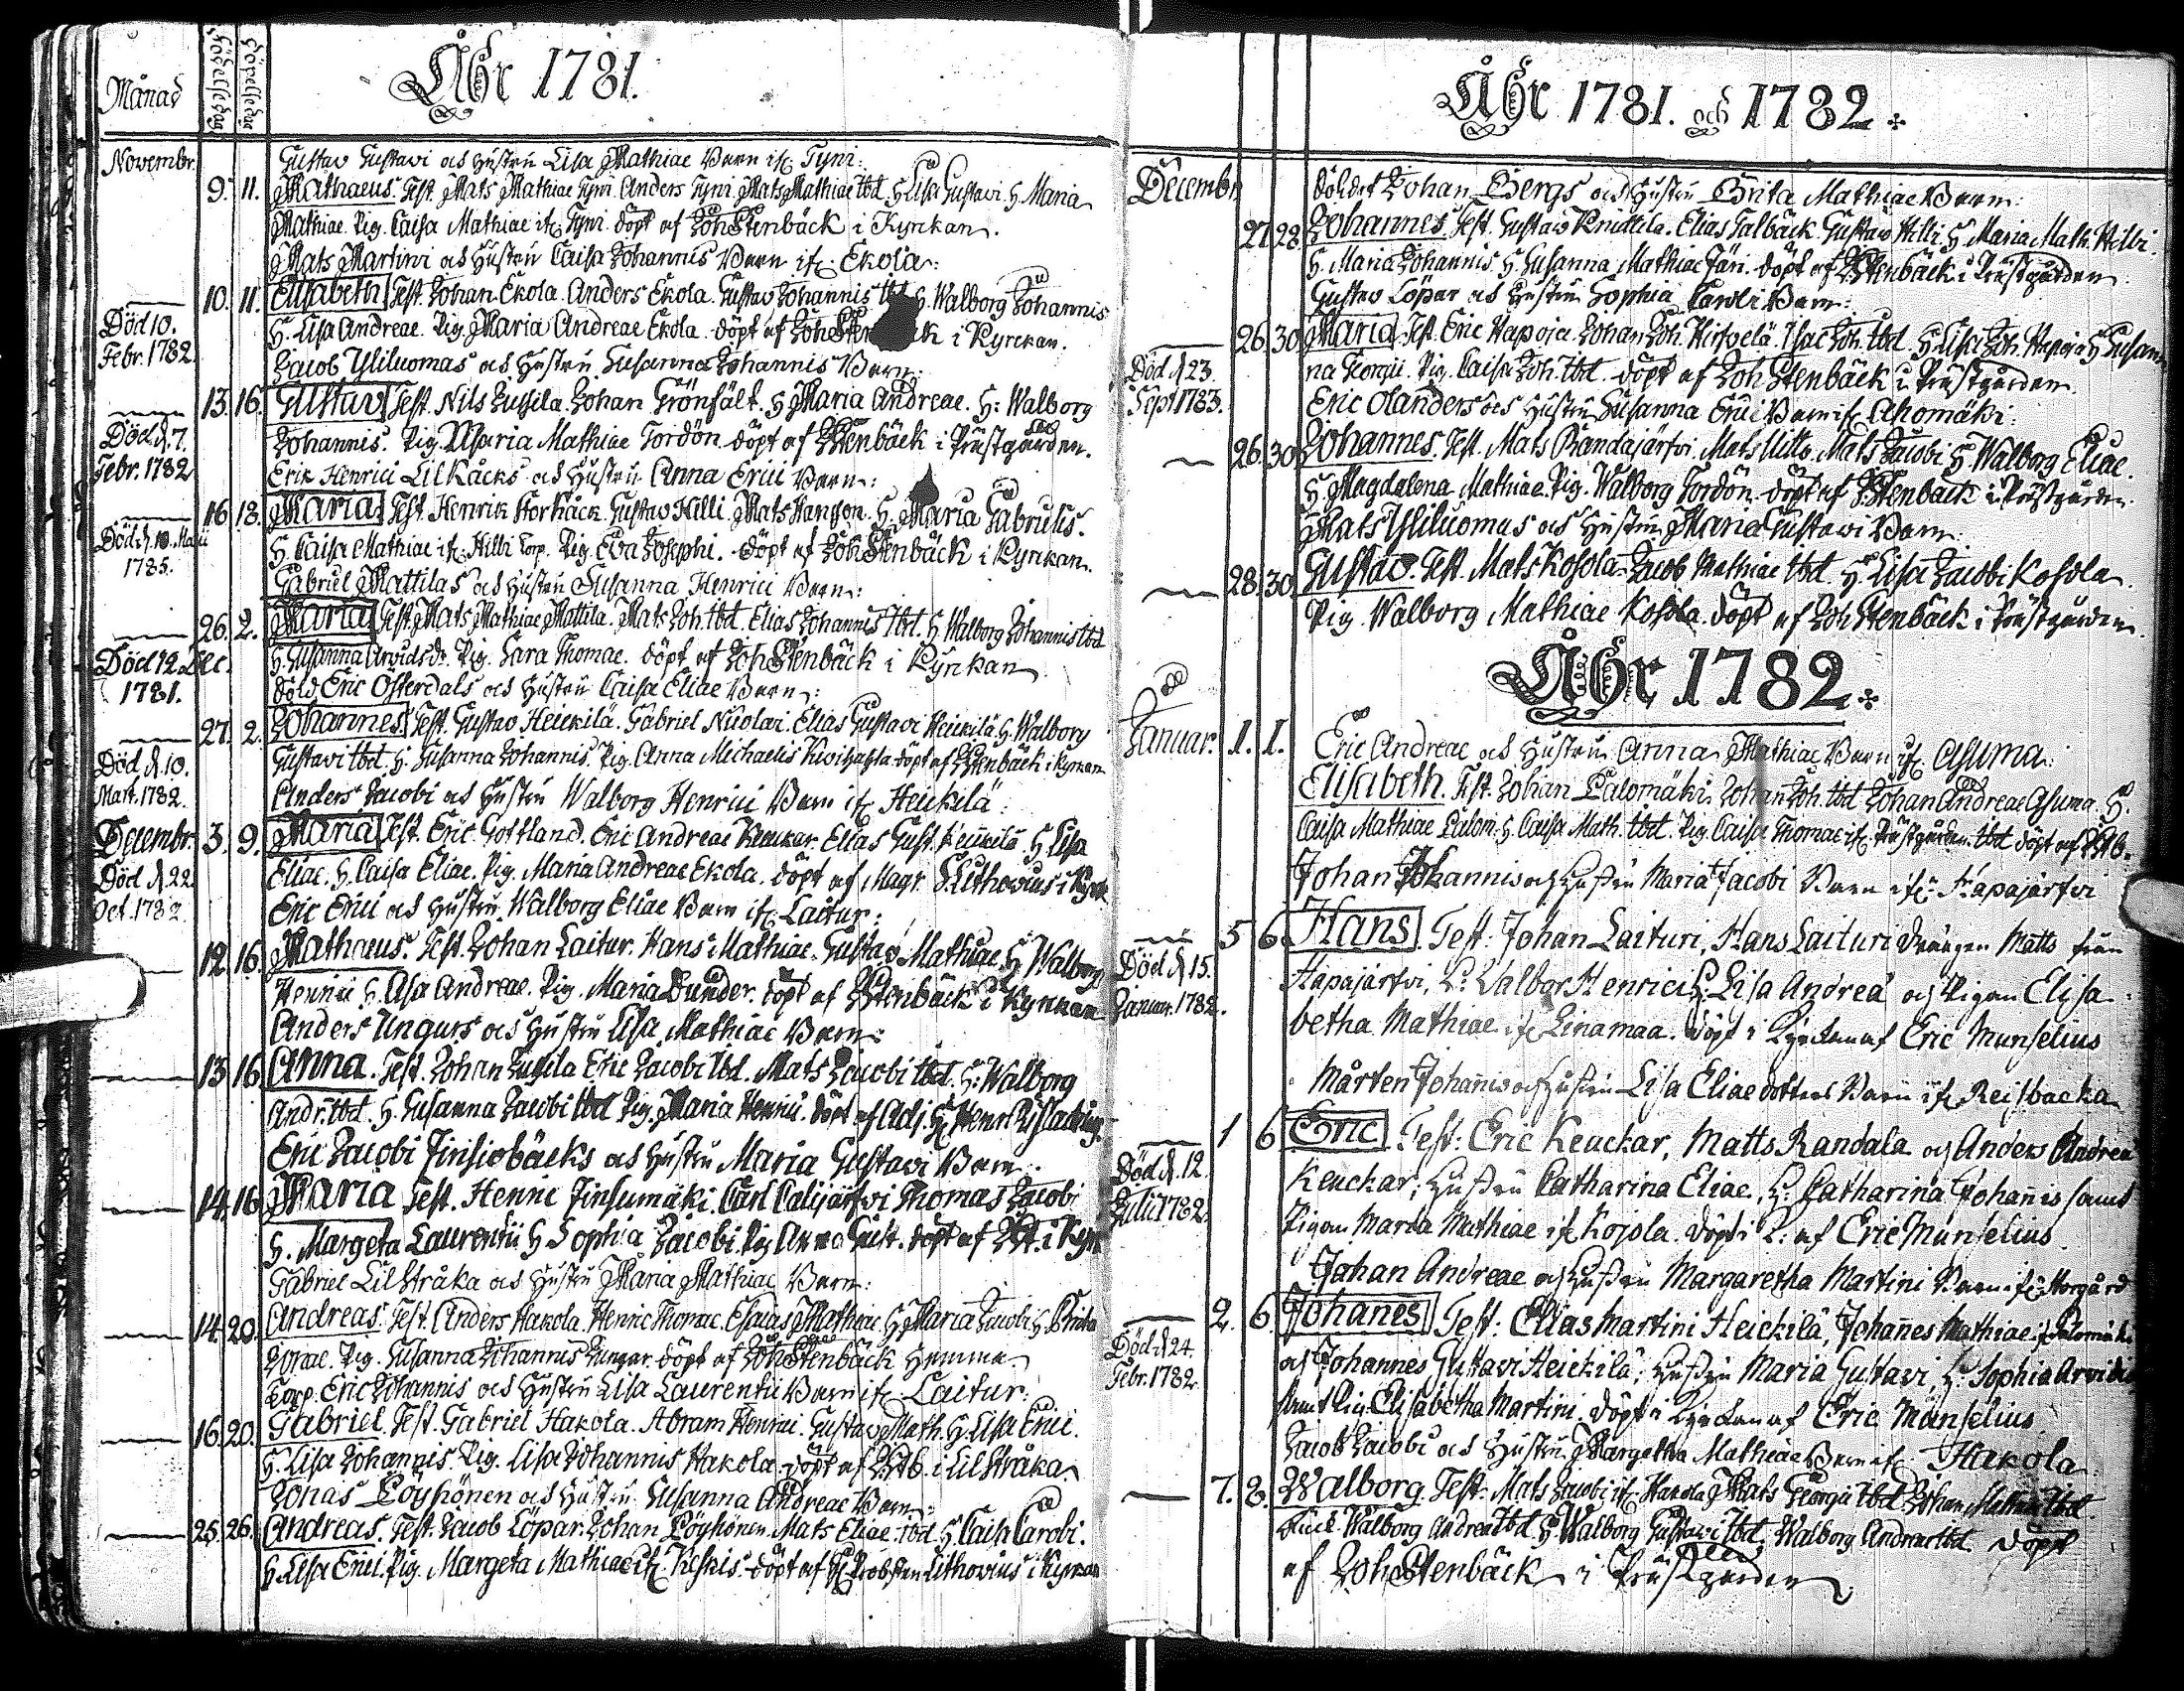 Månad
Födelsedag
Döpelsedag
Åhr 1781.
Novembr.
Gustav Gustavi och Hustru Lisa Mathiae Barn ifr. Tyni:
9. 11. Mathaeus. Test. Mats Mathiae Tyni. Anders Tyni. Mats Mathiae ibd. H Lisa Gustavi. H. Maria
Mathiae. Pig. Caisa Mathiae ifr. Tyni. döpt af Joh Stenbäck i Kyrckan.
Mats Martini och Hustru Caisa Johannis Barn ifr. Ekola:
10. 11. Elisabeth Test. Johan Ekola. Anders Ekola. Gustav Johannis H. Walborg Johannis
Död 10.
Febr. 1782
H. Lisa Andreae. Pig. Maria Andreae Ekola. döpt af i Kyrckan.
Jacob Yliluomas och Hustru Susanna Johannis Barn:
13. 16. Gustav Test. Nils Jussila. Johan Grönfält. H Maria Andreae. H: Walborg
Död d. 7.
Febr. 1782
Johannis. Pig. Maria Mathiae Tordön. döpt af J Stenbäck i Prästgården.
Erik Henrici Lilkåcks och Hustru Anna Erici Barn:
16 18. Maria. Test. Henrik Storkåck. Gustav Hilli. Mats Hansson. H. Maria Gabrielis.
Död d. 10. Maii
1785.
H. Caisa Mathiae ifr. Hilbi Torp. Pig. Eva Josephi. döpt af Joh Stenbäck i Kyrckan.
Gabriel Mattilas och Hustru Susanna Henrici Barn:
26. 2. Maria Test. Mats Mathiae Mattila. Mats Joh. ibd. Elias Johannis ibd. H. Walborg Johannis ibd
Död 12 Dec.
1781.
H. Susanna Arvids dr. Pig. Sara Thomae. döpt af Joh Stenbäck i Kyrckan
Eric Osterdals och Hustru Caisa Eliae Barn:
27. 2. Johannes. Test. Gustav Heickilä. Gabriel Nicolai. Elias Gustavi Heickilä H. Walborg
Död d. 10.
Mart. 1782.
Gustavi ibd. H. Susanna Johannis. Pig. Anna Michaelis döpt af J Stenbäck i Kyrckan
Anders Jacobi och Hustru Walborg Henrici Barn ifr. Heickilä:
Decembr. 3. 9. Maria Test. Eric Gottland. Eric Andreae Keuckar. Elias Gust. Heickilä. H Lisa
Död d. 22.
Oct. 1782
Eliae. H. Caisa Eliae. Pig. Maria Andreae Ekola. döpt af Magr. Lithovius i Kyrck
Eric Erici och Hustru Walborg Eliae Barn ifr. Laitur:
12. 16. Mathaeus. Test. Johan Laitur. Hans Mathiae. Gustav Mathiae H Walborg
Henrici H. Lisa Andreae. Pig. Maria Dunder. döpt af J Stenbäck i Kyrckan
Anders Ungurs och Hustru Lisa Mathiae Barn:
13 16 Anna. Test. Johan Jussila Eric Jacobi ibd. Mats Jacobi ibd. H: Walborg
Andr. ibd. H. Susanna Jacobi ibd Pig. Maria Henrici. döpt af Adj. H
Eric Jacobi Finsiobäcks och Hustru Maria Gustavi Barn.
14. 16 Maria Test. Henric Finsumäki. Carl Calijärfvi Thomas Jacobi
H. Margeta Laurentii H Sophia Jacobi. Pig Anna Gust. döpt af J St. i Kyrk
Gabriel Lilstråka och Hustru Maria Mathiae Barn:
14. 20. Andreas. Test. Anders Hakola. Henric Thomae. Esaias Mathiae. H Maria Jacobi H Brita
Pig. Susanna Johannis Ungar. döpt af Joh Stenbäck Hemma.
Torp. Eric Johannis och Hustru Lisa Laurentii Barn ifr. Laitur:
16. 20. Gabriel. Test. Gabriel Hakola. Abram Henrici. Gustav Math. H. Lisa Erici.
H. Lisa Johannis. Pig. Lisa Johannis Hakola. döpt af J Stb. i Lilstråka
Jonas Löyhönen och Hustru Susanna Andreae Barn:
25. 26. Andreas. Test. Jacob Löpar. Johan Löyhönen. Mats Eliae. ibd. H. Caisa Caroli.
H. Lisa Erici. Pig. Margeta Mathiae ifr. Keskis. döpt af H Probsten Lithovius i Kyrckan
Åhr 1781. och 1782.
Decembr
Johan Bergs och Hustru Brita Mathiae Barn:
27. 28. Johannes. Test. Gustav Knuttila. Elias Talbäck. Gustav Hilli. H Maria Math. Hilbi.
H. Maria Johannis. H. Susanna Mathiae Järi. döpt af J Stenbäck i Prästgården
Gustav Löpar och Hustru Sophia Caroli Barn:
26. 30. Maria. Test. Eric Hapoja. Johan Joh. Hirfvelä. Isac Joh. ibd. H Lisa Joh. Hapoja H Susan
Död d 23.
Sept 1783.
na Georgii. Pig. Caisa Joh. ibd. döpt af Joh Stenbäck i Prästgården.
Eric Olanders och Hustru Susanna Erici Barn ifr. Ahomäki:
26. 30 Johannes. Test. Mats Randajärfvi. Mats Mitto. Mats Jacobi H. Walborg Eliae.
H. Magdalena Mathiae. Pig. Walborg Tordön. döpt af J. Stenbäck i Prästgården.
Mats Yliluomas och Hustru Maria Gustavi Barn:
28. 30. Gustav. Test. Mats Kosola. Jacob Mathiae ibd. H Lisa Jacobi Kosola
Pig. Walborg Mathiae Kosola. döpt af Joh Stenbäck i Prästgården.
Åhr 1782.
Januar. 1. 1. Eric Andreae och Hustru Anna Mathiae Barn ifr. Asuma:
Elisabeth. Test. Johan Palomäki. Johan Joh. ibd. Johan Andreae Asuma. H.
Caisa Mathiae Palom. H. Caisa Math. ibd. Pig. Caisa Thomae ifr. Prästgården. ibd döpt af J Stb.
Johan Johannis och Hustru Maria Jacobi Barn ifr. Hapajärfvi
5 6. Hans. Test: Johan Laituri, Hans Laituri drängen Matts från
Död d 15.
Januar. 1782.
Hapajärfvi, H. Valbor Henrici H. Lisa Andreä och Pigan Elisa-
betha Mathiae ifr. Linamaa. döpt i Kyrckan af Eric Munselius
Mårten Johannis och Hustru Lisa Eliae dotters Barn ifr. Reisbacka
1 6 Eric. Test: Eric Keuckar, Matts Randala och Anders Andreä
Död d. 12.
Julii 1782.
Keuckar, Hustru Catharina Eliae, H. Catharina Johannis samt
Pigan Maria Mathiae ifr Kojola. döpt i K. af Eric Munselius
Johan Andreae och Hustru Margaretha Martini Barn ifr. Norgård
2. 6. Johanes Test: Elias Martini Heickilä, Johannes Mathiae ifr. Palomäki
Död d 24.
Febr. 1782
och Johannes Gustavi Heickilä, Hustru Maria Gustavi, H. Sophia Arvidi
samt Pig. Elisabetha Martini. döpt i Kyrckan af Eric Munselius
Jacob Jacobi och Hustru Margetha Mathiae Barn ifr. Hakola.
7. 8. Walborg. Test: Mats Jacobi ifr. Hakola Mats Georgii ibd. Johan Mathiae ibd.
Walborg Andreae ibd H. Walborg Gustavi ibd. Walborg Andreae ibd. döpt
af Joh Stenbäck i Prästgården